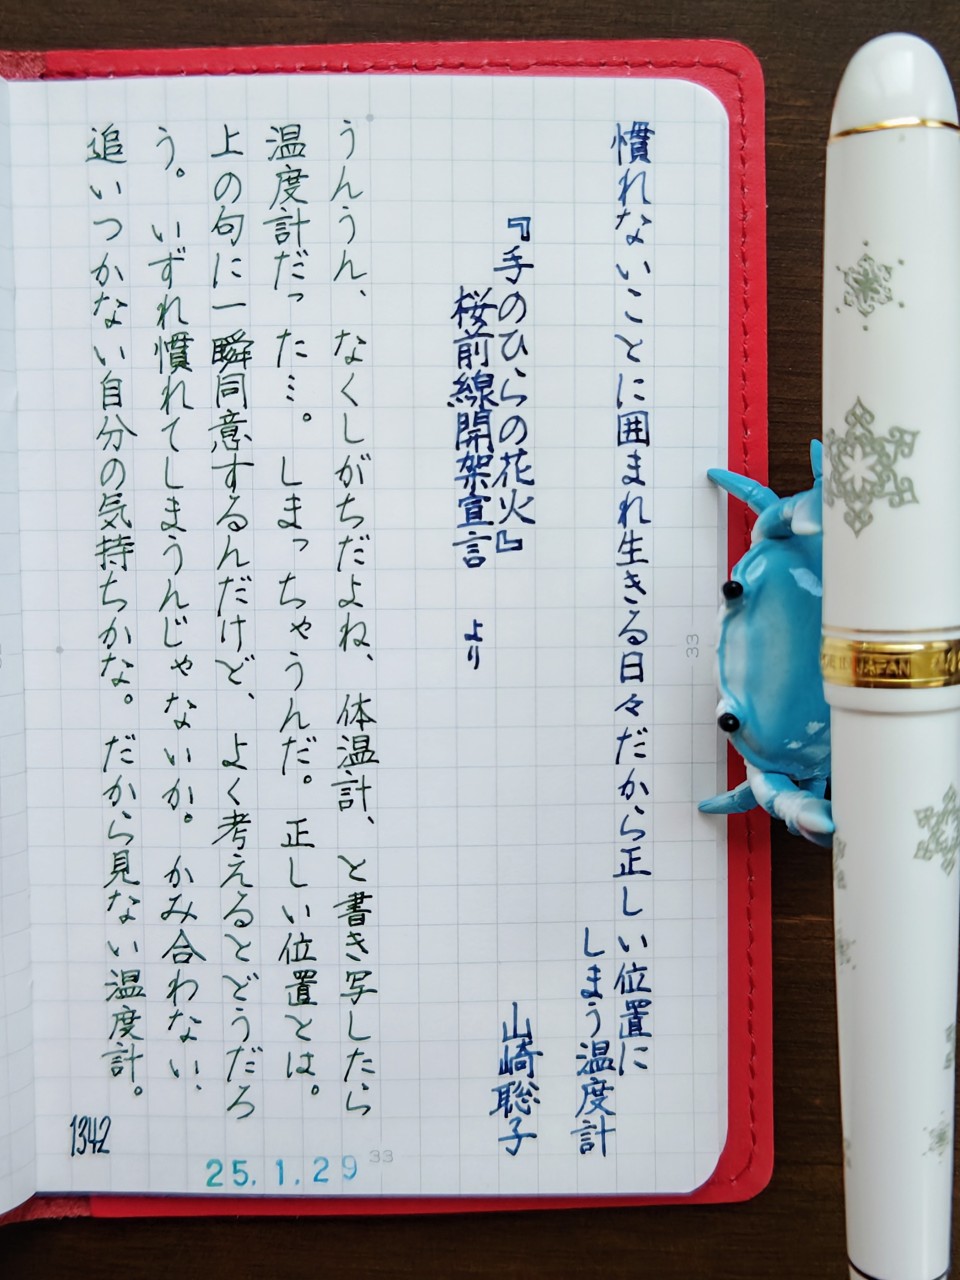 慣れないことに囲まれ生きる日々だから正しい位置に
しまう温度計
山崎聡子
『手のひらの花火』
桜前線開架宣言 より
うんうん、なくしがちだよね、体温計、と書き写したら
温度計だった…。しまっちゃうんだ。正しい位置とは。
上の句に一瞬同意するんだけど、よく考えるとどうだろ
う。いずれ慣れてしまうんじゃないか。かみ合わない、
追いつかない自分の気持ちかな。だから見ない温度計。
1342
25.1.29
33
33
JAPAN